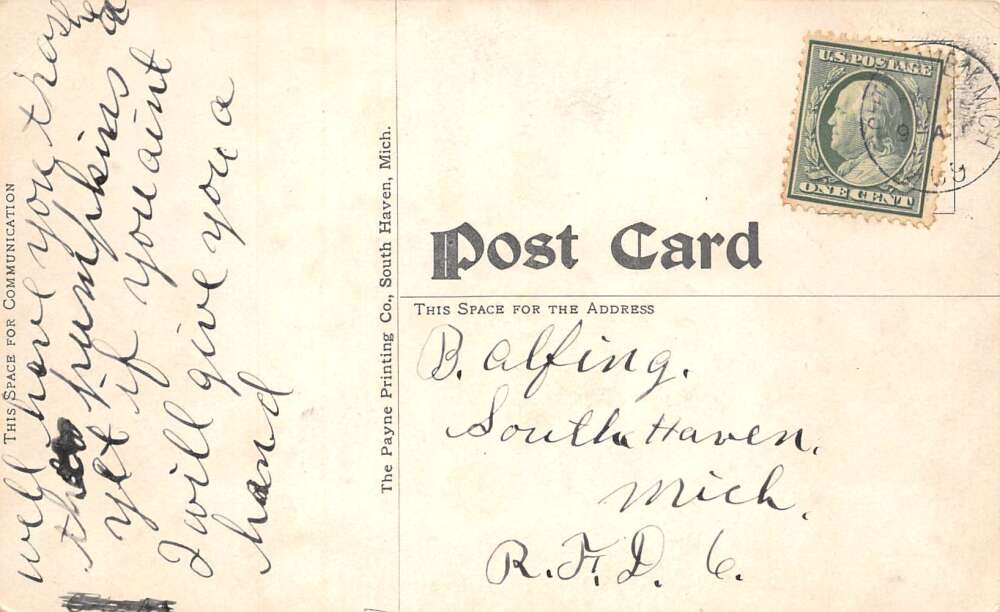 THIS SPACE FOR COMMUNICATION
well have you thrashed
the pumpkins
yet if you aint
I will give you a
hand
The Payne Printing Co., South Haven, Mich.
U.S. POSTAGE
ONE CENT
HAVEN, MICH
9 A
Post Card
THIS SPACE FOR THE ADDRESS
B. Alfing.
South Haven,
Mich,
R.F.D. 6.